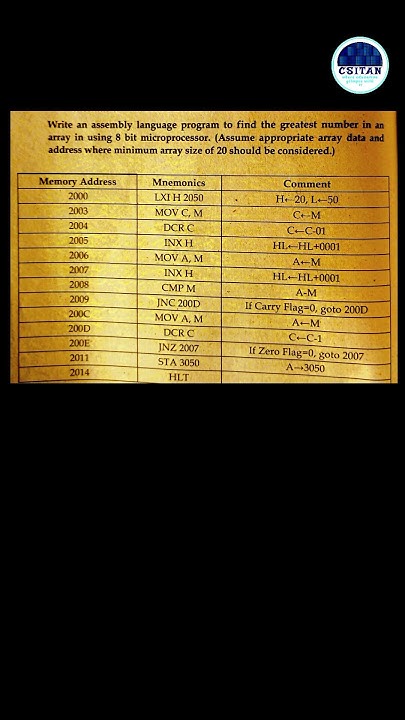 CSITAN
Write an assembly language program to find the greatest number in an
array in using 8 bit microprocessor. (Assume appropriate array data and
address where minimum array size of 20 should be considered.)
Memory Address Mnemonics Comment
2000 LXI H 2050 H←20, L←50
2003 MOV C, M C←M
2004 DCR C C←C-01
2005 INX H HL←HL+0001
2006 MOV A, M A←M
2007 INX H HL←HL+0001
2008 CMP M A-M
2009 JNC 200D If Carry Flag=0, goto 200D
200C MOV A, M A←M
200D DCR C C←C-1
200E JNZ 2007 If Zero Flag=0, goto 2007
2011 STA 3050 A→3050
2014 HLT